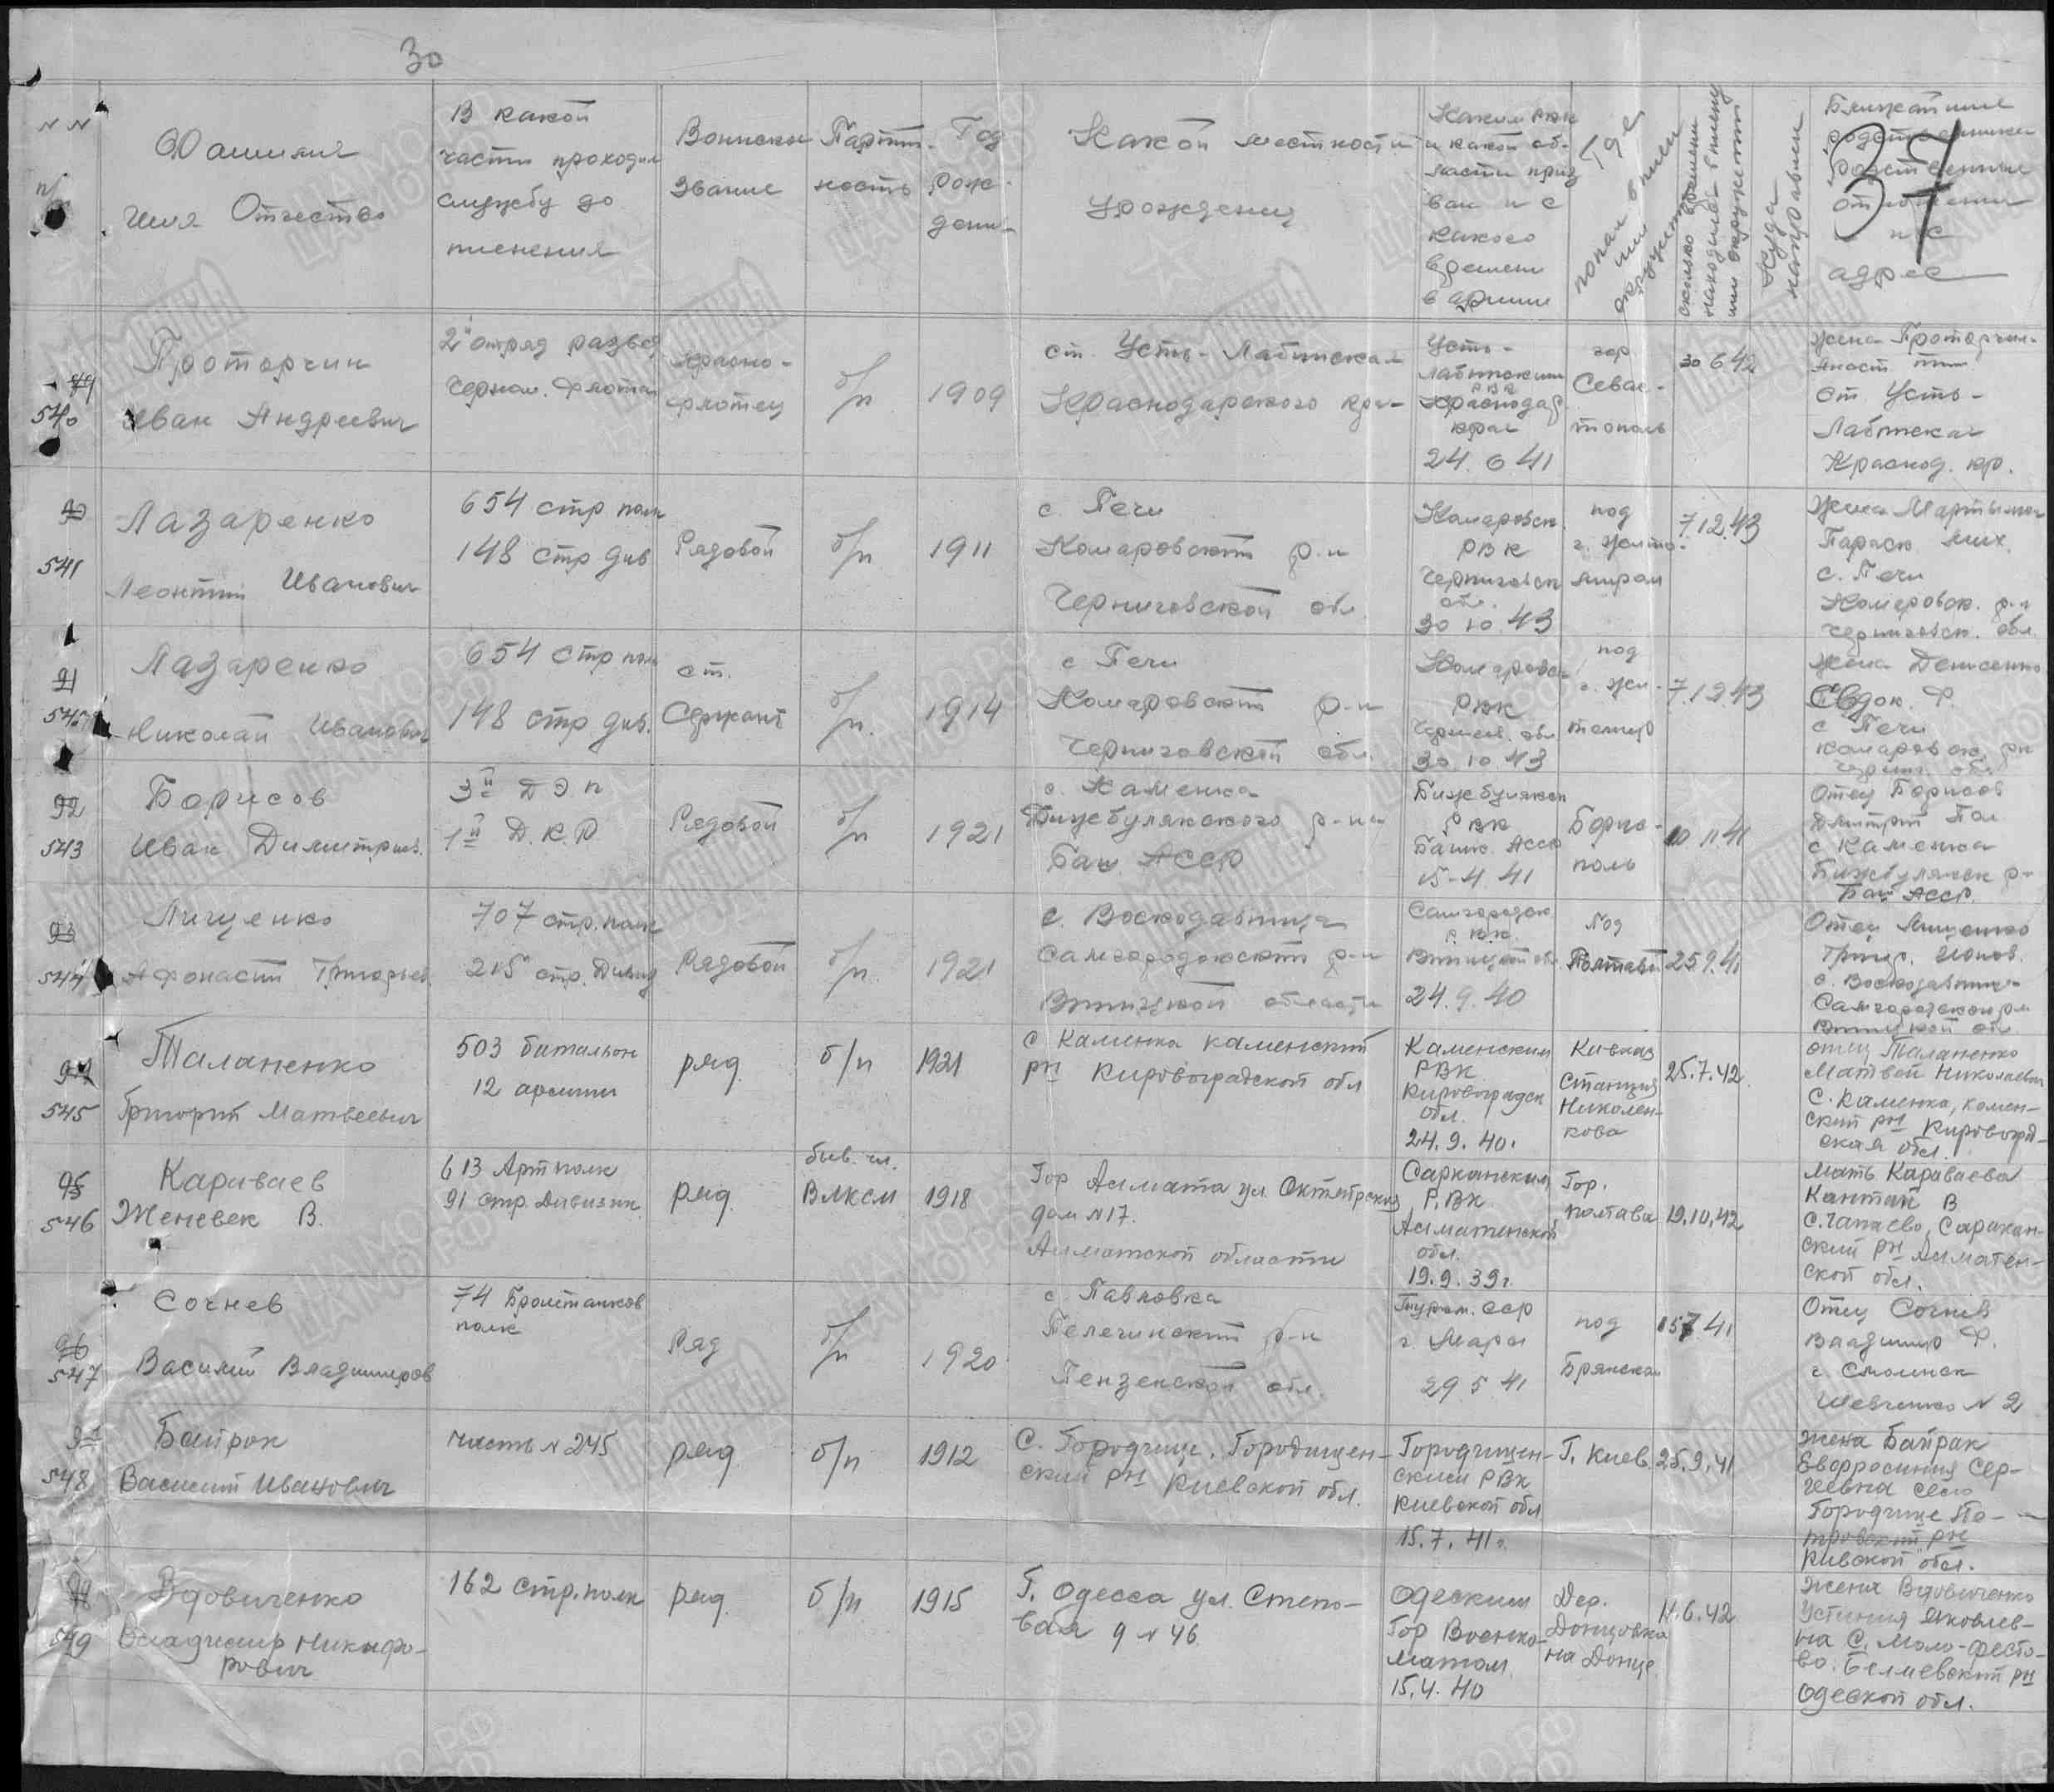 30
37
№ №
п/п
Фамилия
имя Отчество
В какой
части проходил
службу до
пленения
Воинское
звание
Партий-
ность
Год
рож-
дения
Какой местности
урожденец
Каким РВК
и какой об-
ласти приз
ван и с
какого
времени
в армии
Где
попал в плен
или
окружение
сколько времени
находился в плену
или окружении
Куда
направлен
Ближайшие
родственники
родственные
отношения
и с
адрес
89
540
Проторчин
Иван Андреевич
2й отряд развед
Черном. флота
красно-
флотец
б/п
1909
ст. Усть-Лабинская
Краснодарского кра-
Усть-
Лабинским
РВК
Краснодар
края
24.6 41
гор.
Севас-
тополь
30 6 42
жена Проторчин-
ст. Усть-
Лабинская
Краснод. кр.
90
541
Лазаренко
Леонтий Иванович
654 стр полк
148 стр див
Рядовой
б/п
1911
с. Печи
Комаровский р-н
Черниговской обл
Комаровск.
РВК
Черниговск
обл.
30 10 43
под
г. Жито-
миром
7.12.43
Жена Мартыненко
Параск Мих.
с. Печи
Комаровск. р-н
Черниговск. обл
91
542
Лазаренко
Николай Иванович
654 стр полк
148 стр див.
ст.
Сержант
б/п.
1914
с Печи
Комаровский р-н
Черниговской обл.
Комаровск-
РВК
Черниг. обл
30.10 43
под
г. Жи-
томир
7.12.43
жена Денисенко
Евдок. Ф.
с Печи
комаровск. рн
черниг. обл
92
543
Борисов
Иван Димитриев.
3й Д Э п
1й Д.К.Р
Рядовой
б/п
1921
с. Каменка
Бижебулякского р-на
Баш. АССР
Бижбулякск
РВК
Башк. АССР
15-4 41
Борис-
поль
10 11 41
Отец Борисов
Дмитрий Пав
с Каменка
Бижбулякск р-
Баш АССР.
93
544
Лищенко
Афонасий Григорьев.
707 стр. полк
215й стр. Дивиз
Рядовой
б/п.
1921
с. Воскодавинца
Самгородокский р-н
Винницкой области
Самгородск
Р.В.К.
Винницкой об
24.9.40
под
Полтавой
25 9.41
Отец Лищенко
Григ. Ионов.
с. Воскодавинц-
Самгородском рн
Винницкой обл.
94
545
Таланенко
Григорий Матвеевич
503 батальон
12 армии
ряд.
б/п
1921
с Каменка каменский
рн Кировоградской обл
Каменским
РВК
Кировоградск
обл.
24.9.40.
Кавказ
Станция
Николен-
кова
25.7.42
отец Таланенко
Матвей Николаевич
С. Каменка, камен-
ский рн Кировоград-
ская обл.
95
546
Караваев
Женевек В.
613 Арт полк
91 стр. Дивизии
ряд.
быв. чл.
ВЛКСМ
1918
Гор Алмата ул Октябрская
дом № 17.
Алматской области
Сарканским
Р.ВК
Алматинской
обл.
19.9.39г
Гор.
полтава
19.10.42
мать Караваева
Кантай В
с. Чапаево, Саркан-
ский рн Алматен-
ской обл.
96
547
Сочнев
Василий Владимиров
74 Бронетанков
полк
Ряд
б/п
1920
с Павловка
Телегинский р-н
Пензенской обл.
Туркм. ССР
г. Мары
29 5 41
под
Брянском
15 7 41
Отец Сочнев
Владимир Ф.
г. Смоленск
Шевченко № 2
97
548
Байрак
Василий Иванович
часть № 245
ряд
б/п
1912
С. Городище, Городищен-
ский рн Киевской обл.
Городищен-
ским РВК
Киевской обл
15.7.41г.
Г. Киев.
25.9.41
Жена Байрак
Евфросиния Сер-
геевна село
Городище Пе-
тровский рн
Киевской обл.
98
549
Вдовиченко
Владимир Никифо-
рович
162 стр. полк
ряд.
б/п
1915
Г. Одесса ул. Степо-
вая д № 46
Одеским
Гор Военко-
матом
15.4.40
Дер.
Донцовка
на Донце.
11.6.42
Жена Вдовиченко
Устиния Яковлев-
на С. Мало-фесто-
во. Беляевский рн
Одеской обл.